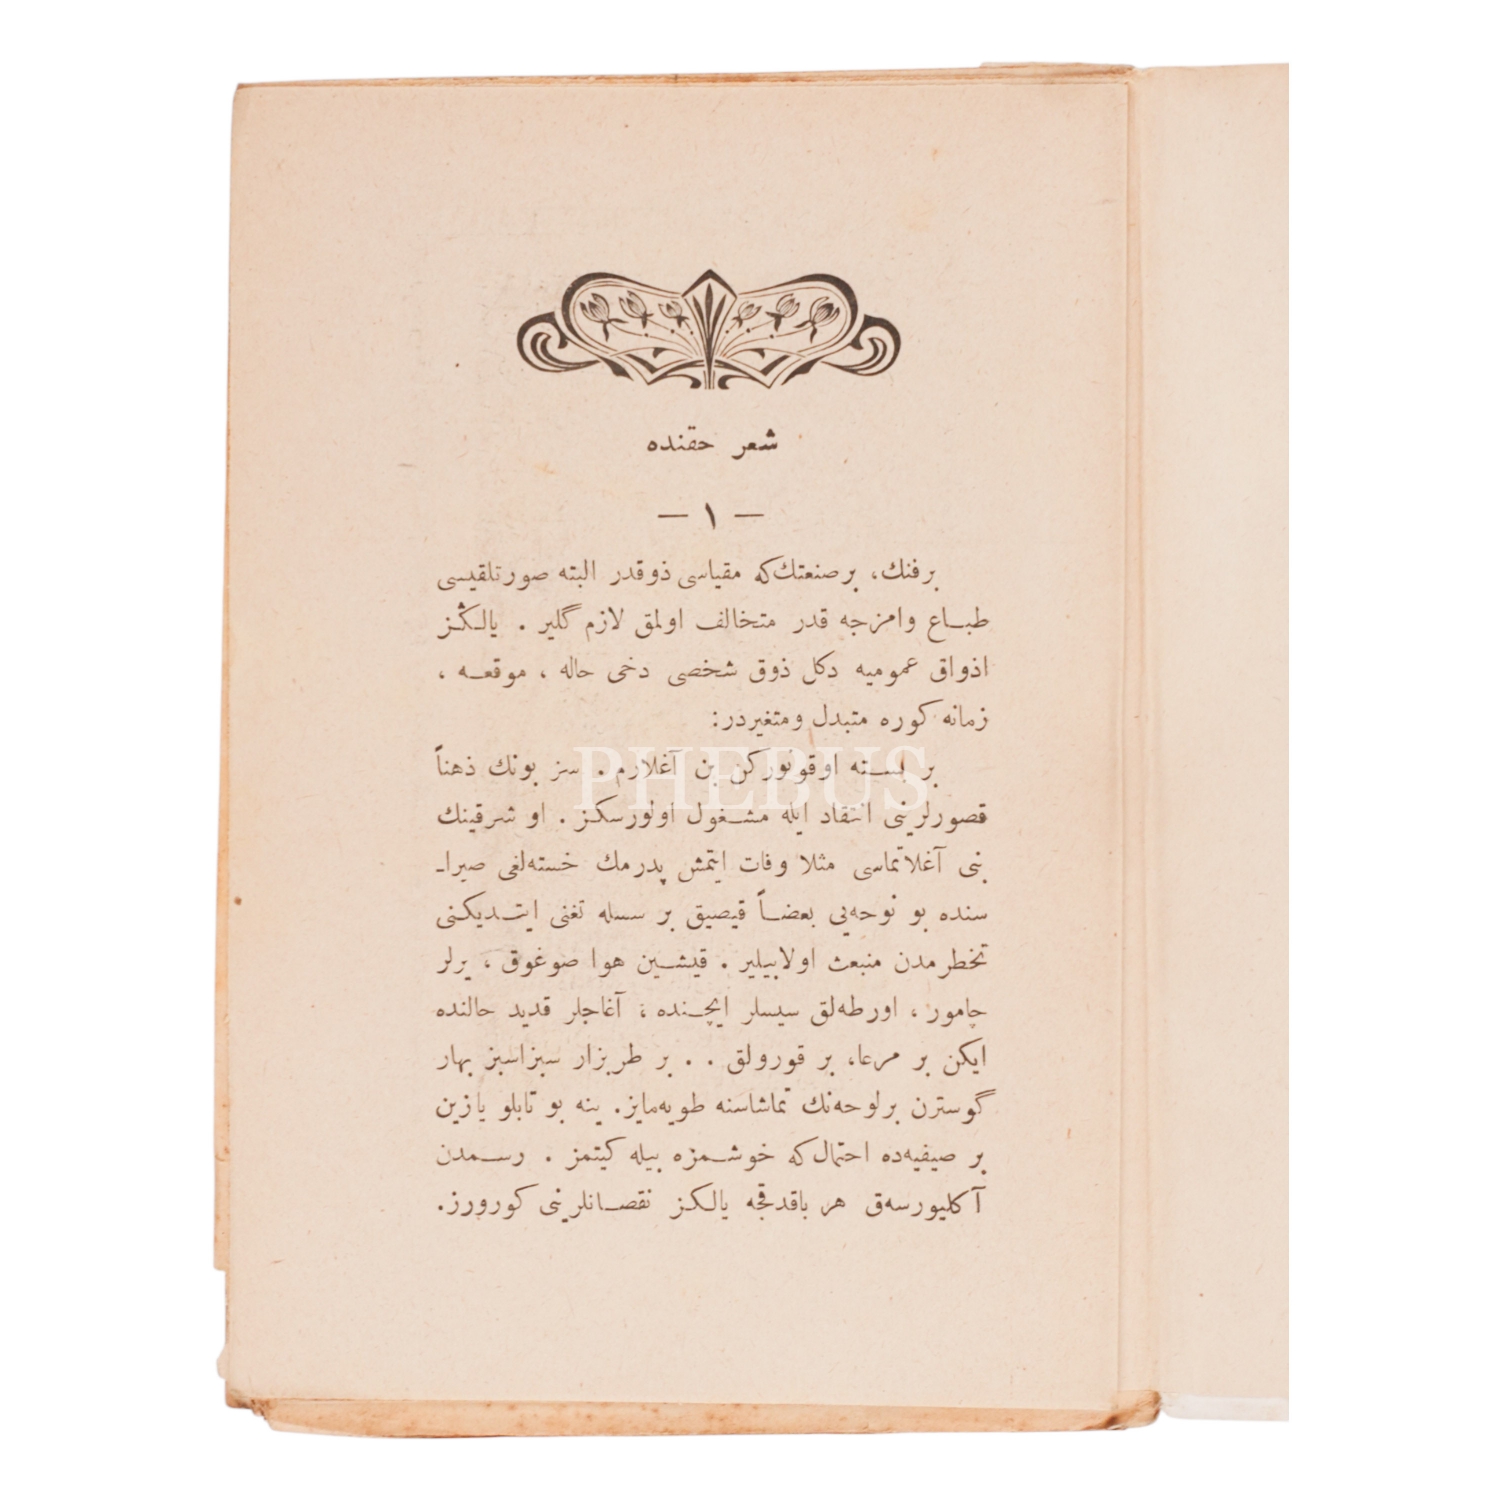 شعر حقنده
— ١ —
بر فنك، بر صنعتك كه مقياسى ذوقدر البته صورتلقيسى
طبـاع وامزجه قدر متخالف اولمق لازم گلير . يالـڭـز
اذواق عموميه دكل ذوق شخصى دخى حاله ، موقعـه ،
زمانه كوره متبدل ومتغيردر:
بر بسـته اوقونوركن بن آغلارم . سز بونك ذهناً
قصورلرينى انتقاد ايله مشـغول اولورسكز . او شرقينك
بنى آغلاتماسى مثلا وفات ايتمش پدرمك خسته‌لغى صيراـ
سنده بو نوحه‌يى بعضـاً قيصيق بر سسله تغنى ايتـديكنى
تخطرمدن منبعث اولابيلير . قيشـين هوا صوغوق ، يرلر
چامور ، اورطه‌لق سيسلر ايچـنده ، آغاجلر قديد حالنده
ايكن بر مرعا، بر قورولق . . بر طربزار سبزاسبز بهار
گوسترن برلوحه‌نك تماشاسنه طويه‌مايز. ينه بو تابلو يازين
بر صيفيه‌ده احتمال كه خوشـمزه بيله كيتمز . رسـمدن
آكليورسه‌ق هر باقدقجه يالكز نقصـانلرينى كورورز.
PHEBUS